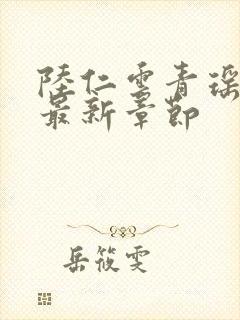 陸仁雲青瑶
最新章節
岳筱雯